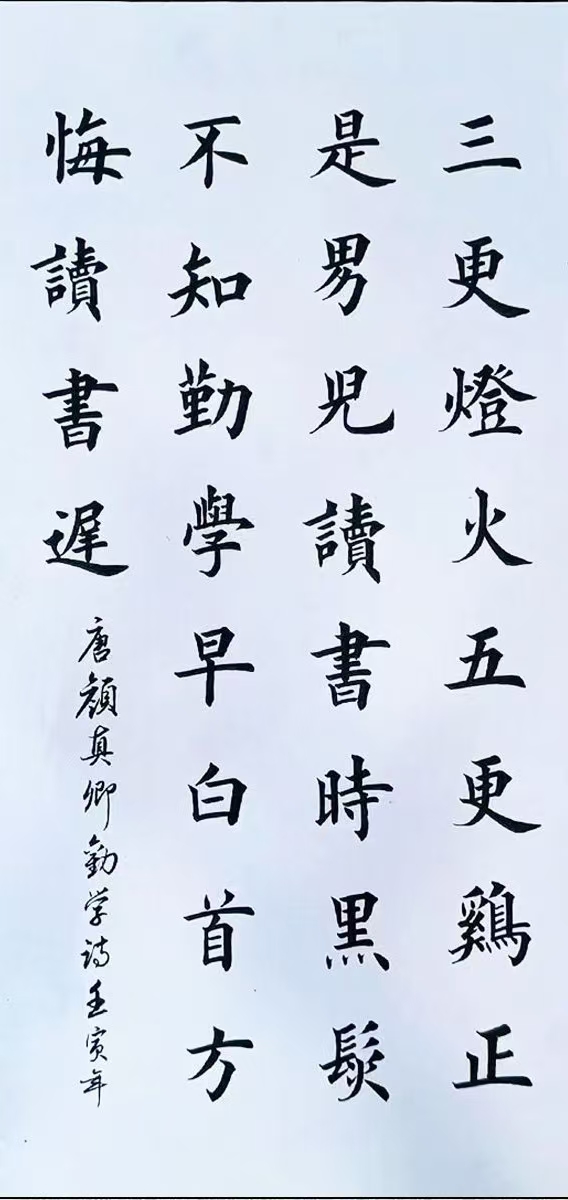 三更燈火五更鷄正
是男兒讀書時黑髮
不知勤學早白首方
悔讀書遲
唐顔真卿勸学詩壬寅年